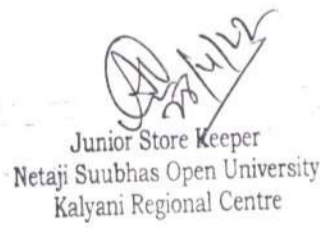 28/4/22
Junior Store Keeper
Netaji Suubhas Open University
Kalyani Regional Centre